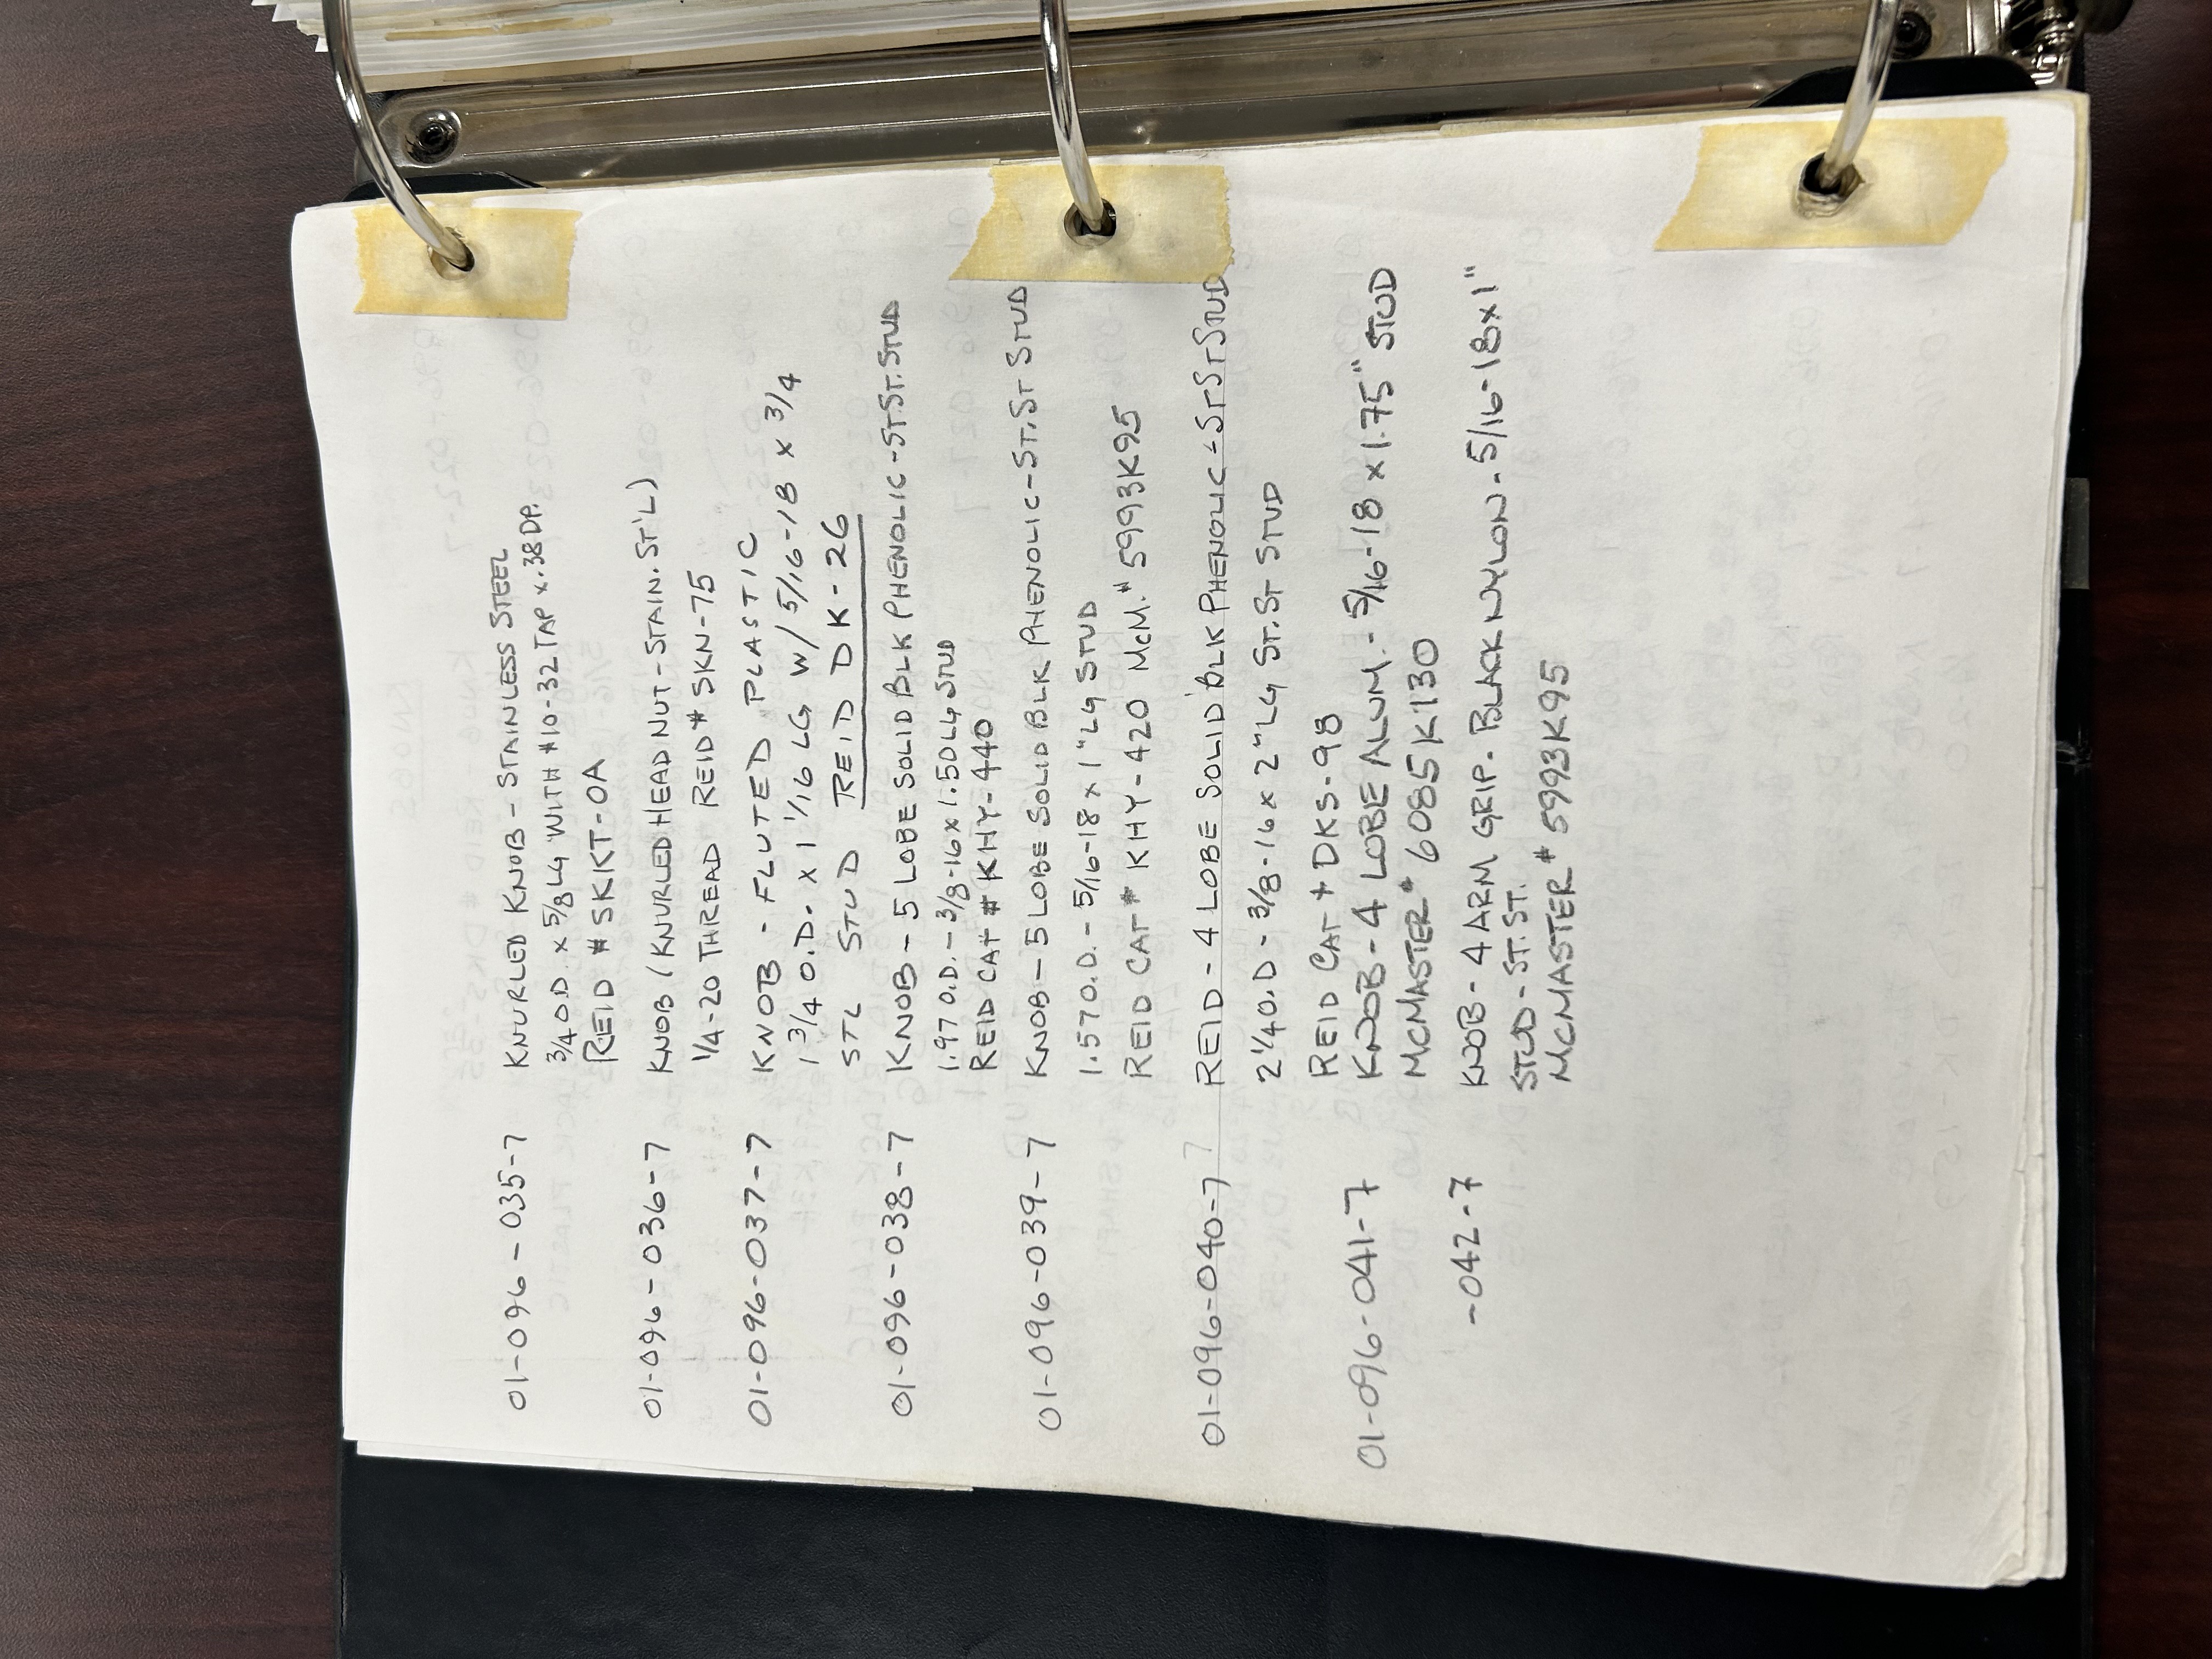 01-096-035-7 KNURLED KNOB - STAINLESS STEEL
3/4 O.D. x 5/8 LG WITH #10-32 TAP x .38 DP.
REID # SKKT-OA
01-096-036-7 KNOB (KNURLED HEAD NUT - STAIN. ST'L)
1/4-20 THREAD REID # SKN-75
01-096-037-7 KNOB - FLUTED PLASTIC
1 3/4 O.D. x 1 1/16 LG W/ 5/16-18 x 3/4
STL STUD REID DK-26
01-096-038-7 KNOB - 5 LOBE SOLID BLK PHENOLIC - ST.ST. STUD
1.97 O.D. - 3/8-16 x 1.50 LG STUD
REID CAT # KHY-440
01-096-039-7 KNOB - 5 LOBE SOLID BLK PHENOLIC - ST.ST STUD
1.57 O.D. - 5/16-18 x 1" LG STUD
REID CAT # KHY-420 McM. # 5993K95
01-096-040-7 REID - 4 LOBE SOLID BLK PHENOLIC - ST ST STUD
2 1/4 O.D - 3/8-16 x 2" LG ST.ST STUD
REID CAT # DKS-98
01-096-041-7 KNOB - 4 LOBE ALUM. - 5/16-18 x 1.75" STUD
MCMASTER # 6085K130
-042-7 KNOB - 4 ARM GRIP. BLACK NYLON - 5/16-18 x 1"
STUD - ST. ST.
MCMASTER # 5993K95